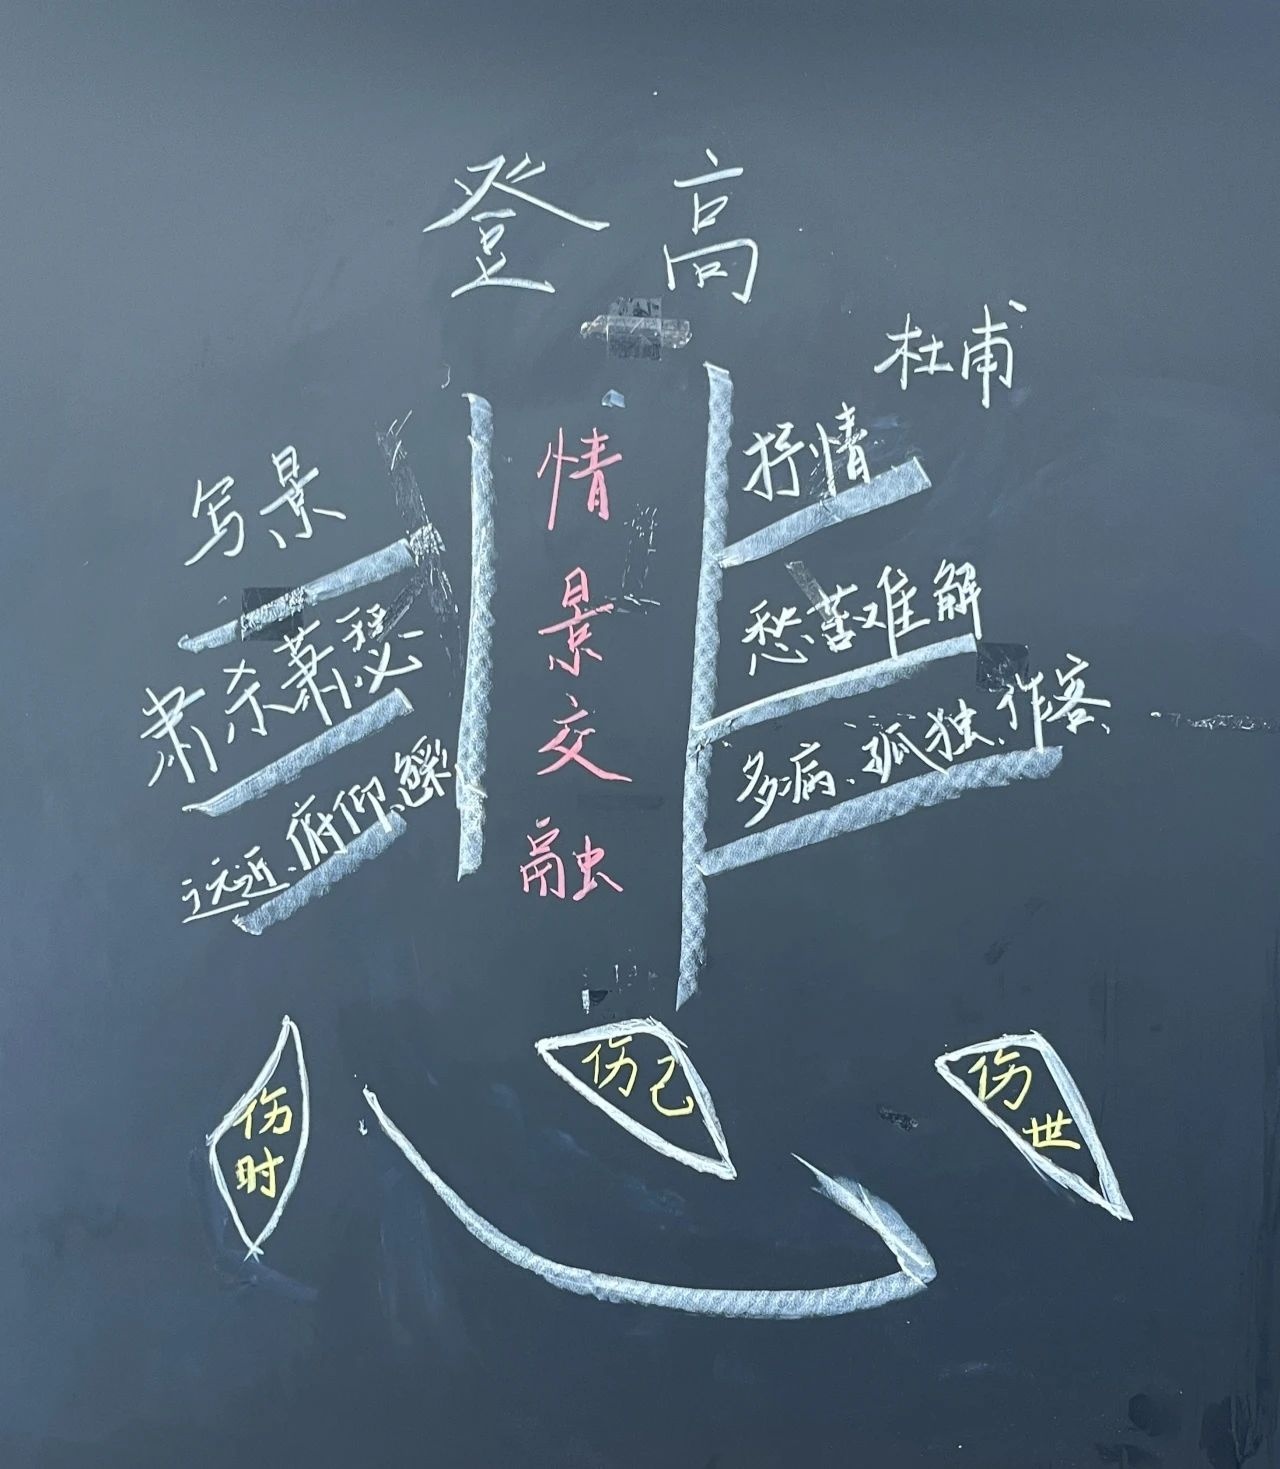 登高
杜甫
写景
肃杀萧瑟
远近、俯仰、
情景交融
抒情
愁苦难解
多病、孤独、作客
伤时
伤己
伤世